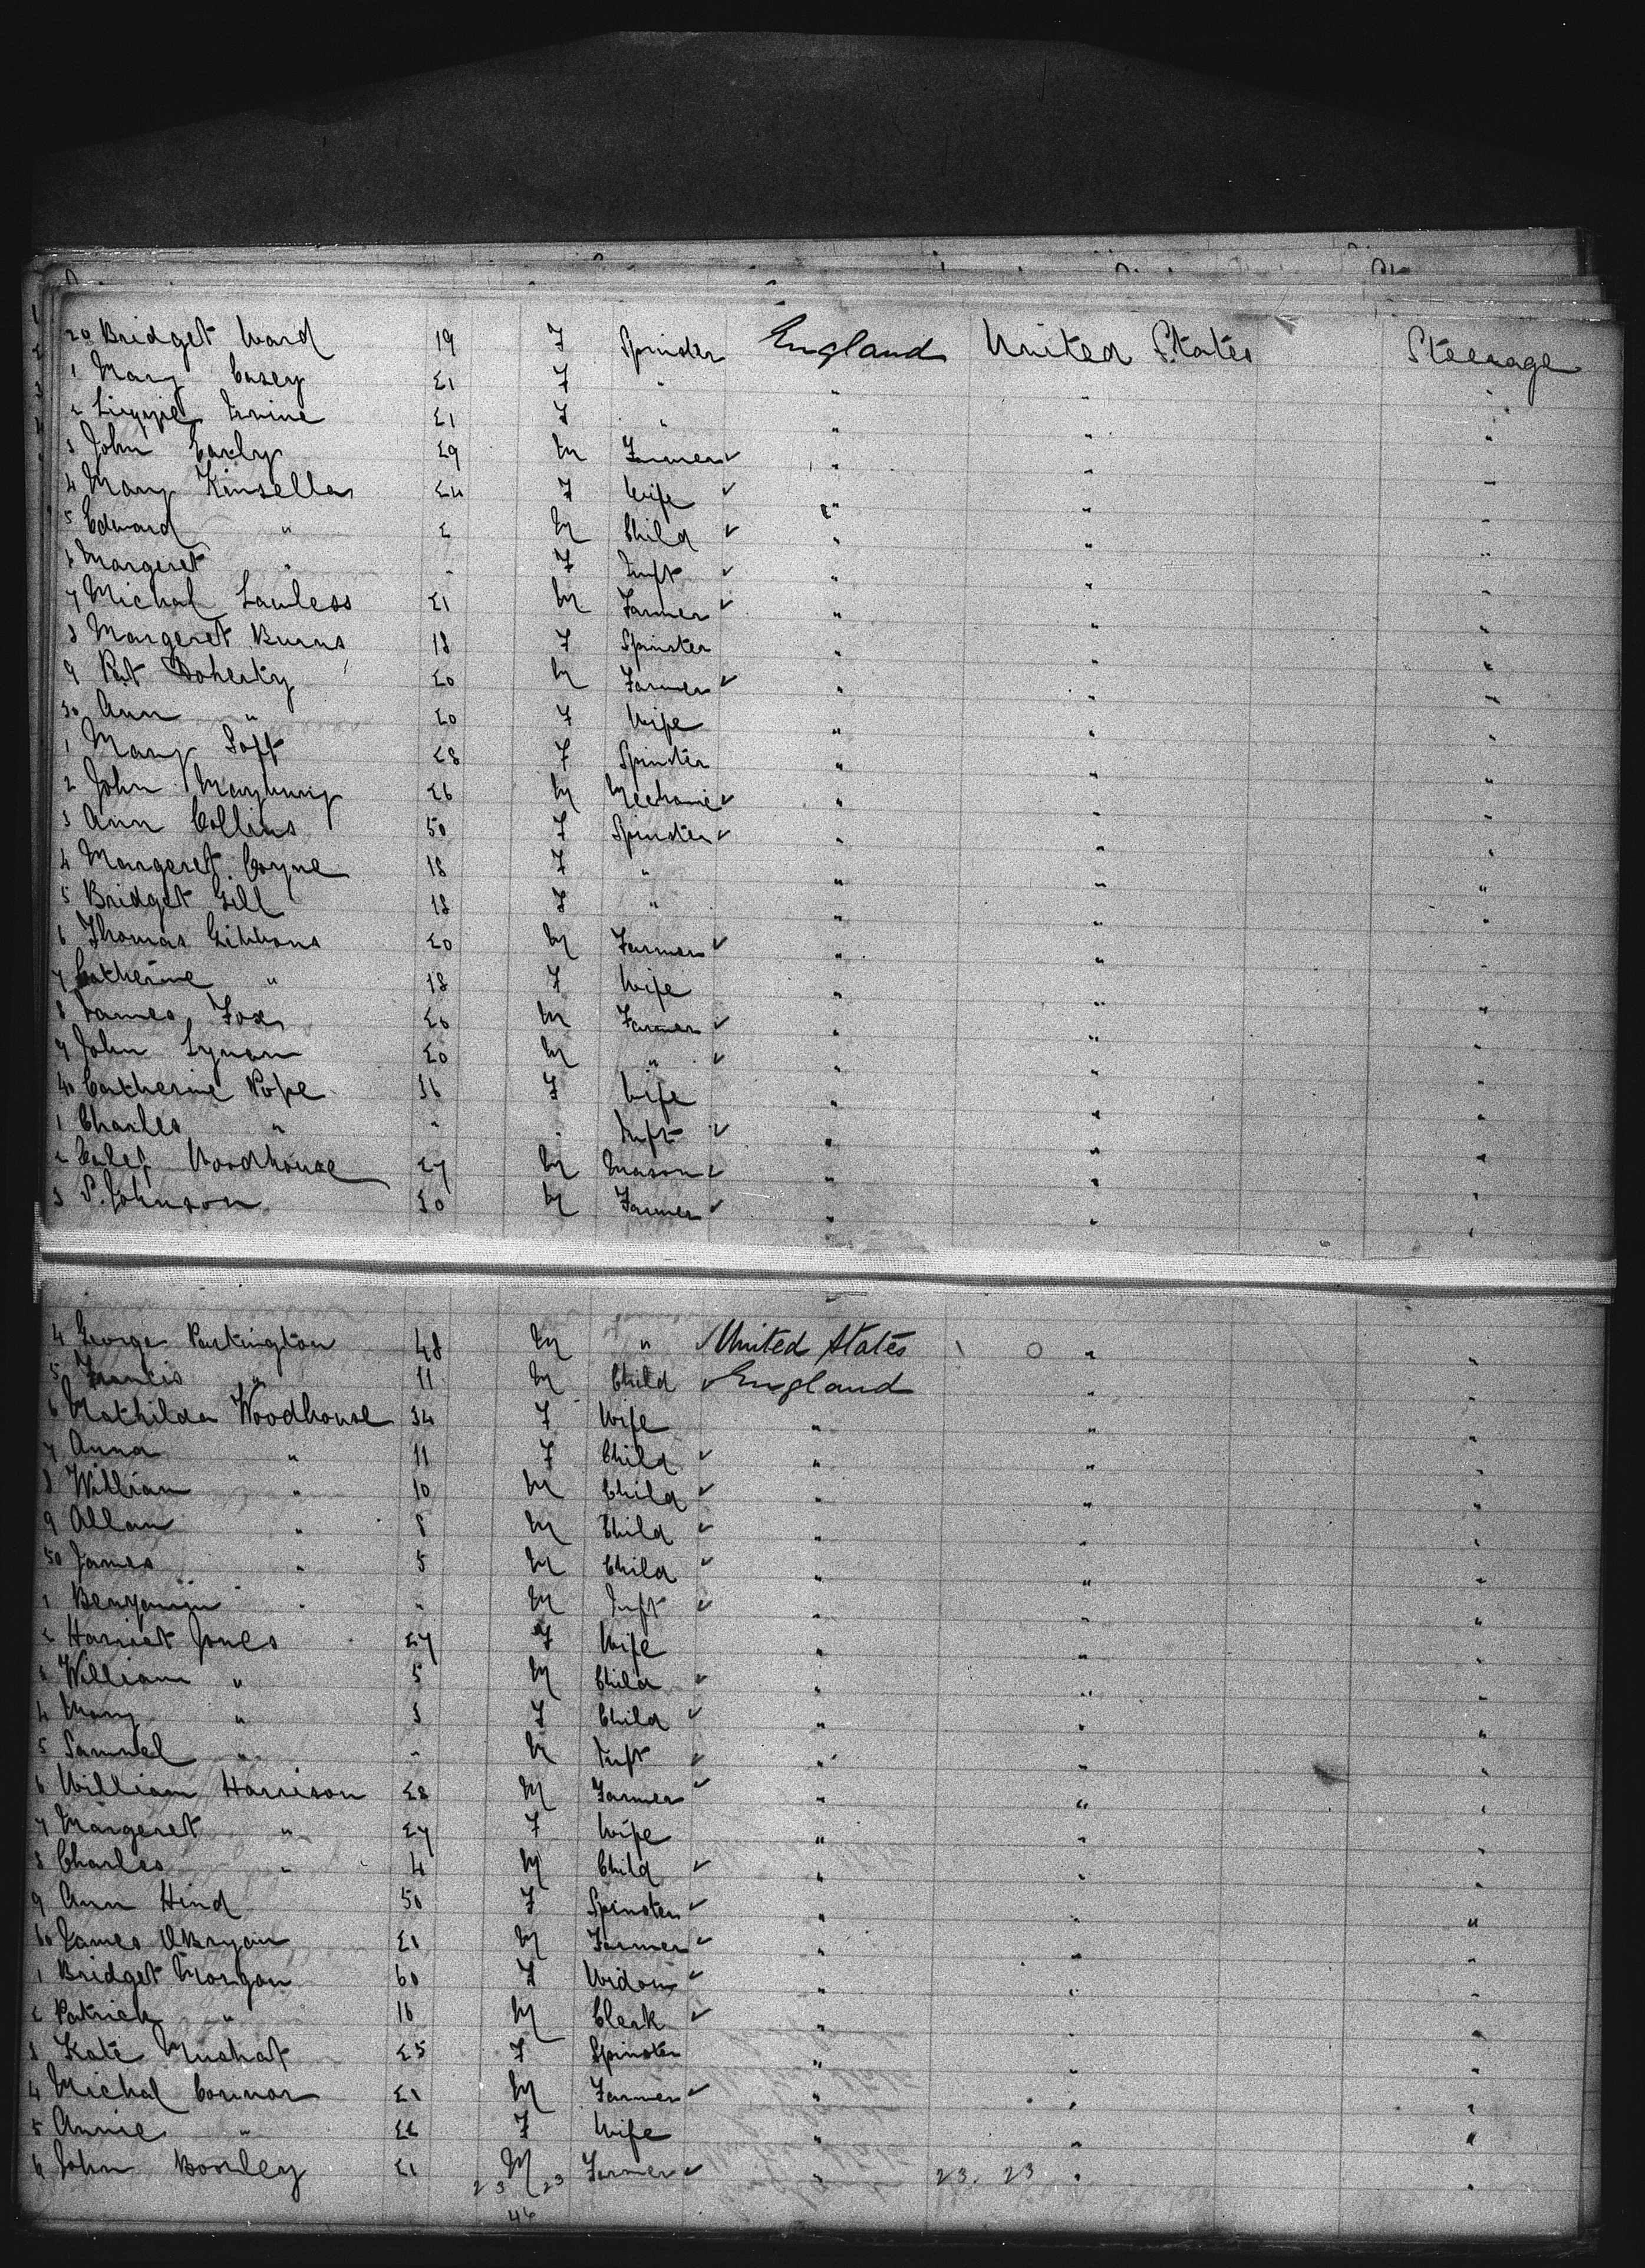 20 Bridget Ward 19 F Spinster England United States Steerage
1 Mary Casey 21 F " " " "
2 Lizzie Irvine 21 F " " " "
3 John Early 29 M Farmer ✓ " " "
4 Mary Kinsella 24 F Wife ✓ " " "
5 Edward " 2 M Child ✓ " " "
6 Margeret " " F Inft ✓ " " "
7 Michal Lawless 21 M Farmer ✓ " " "
8 Margeret Burns 18 F Spinster " " "
9 Pat Doherty 20 M Farmer ✓ " " "
30 Ann " 20 F Wife " " "
1 Mary 28 F Spinster " " "
2 John 26 M Mechanic ✓ " " "
3 Ann Collins 50 F Spinster ✓ " " "
4 Margeret Coyne 18 F " " " "
5 Bridget Gill 18 F " " " "
6 Thomas Gibbons 20 M Farmer ✓ " " "
7 Catherine " 18 F Wife " " "
8 James Fox 20 M Farmer ✓ " " "
9 John 20 M " ✓ " " "
40 Catherine Pope 36 F Wife " " "
1 Charles " " Inft ✓ " " "
2 Woodhouse 27 M Mason ✓ " " "
3 P. Johnson 30 M Farmer ✓ " " "
4 George Partington 48 M " ✓ United States " "
5 Francis " 11 M Child ✓ England " "
6 Mathilda Woodhouse 34 F Wife " " "
7 Anna " 11 F Child ✓ " " "
8 William " 10 M Child ✓ " " "
9 Allan " 8 M Child ✓ " " "
50 James " 5 M Child ✓ " " "
1 Benjamin " " M Inft ✓ " " "
2 Harriet Jones 27 F Wife " " "
3 William " 5 M Child ✓ " " "
4 Mary " 3 F Child ✓ " " "
5 Samuel " " M Inft ✓ " " "
6 William Harrison 28 M Farmer ✓ " " "
7 Margeret " 27 F Wife " " "
8 Charles " 4 M Child ✓ " " "
9 Ann Hind 50 F Spinster ✓ " " "
60 James OBryan 21 M Farmer ✓ " " "
1 Bridget Morgan 60 F Widow ✓ " " "
2 Patrick " 16 M Clerk ✓ " " "
3 Kate Mushat 25 F Spinster " " "
4 Michal Connor 21 M Farmer ✓ " " "
5 Annie " 22 F Wife " " "
6 John 21 M Farmer ✓ " " "
23 23 23. 23
46